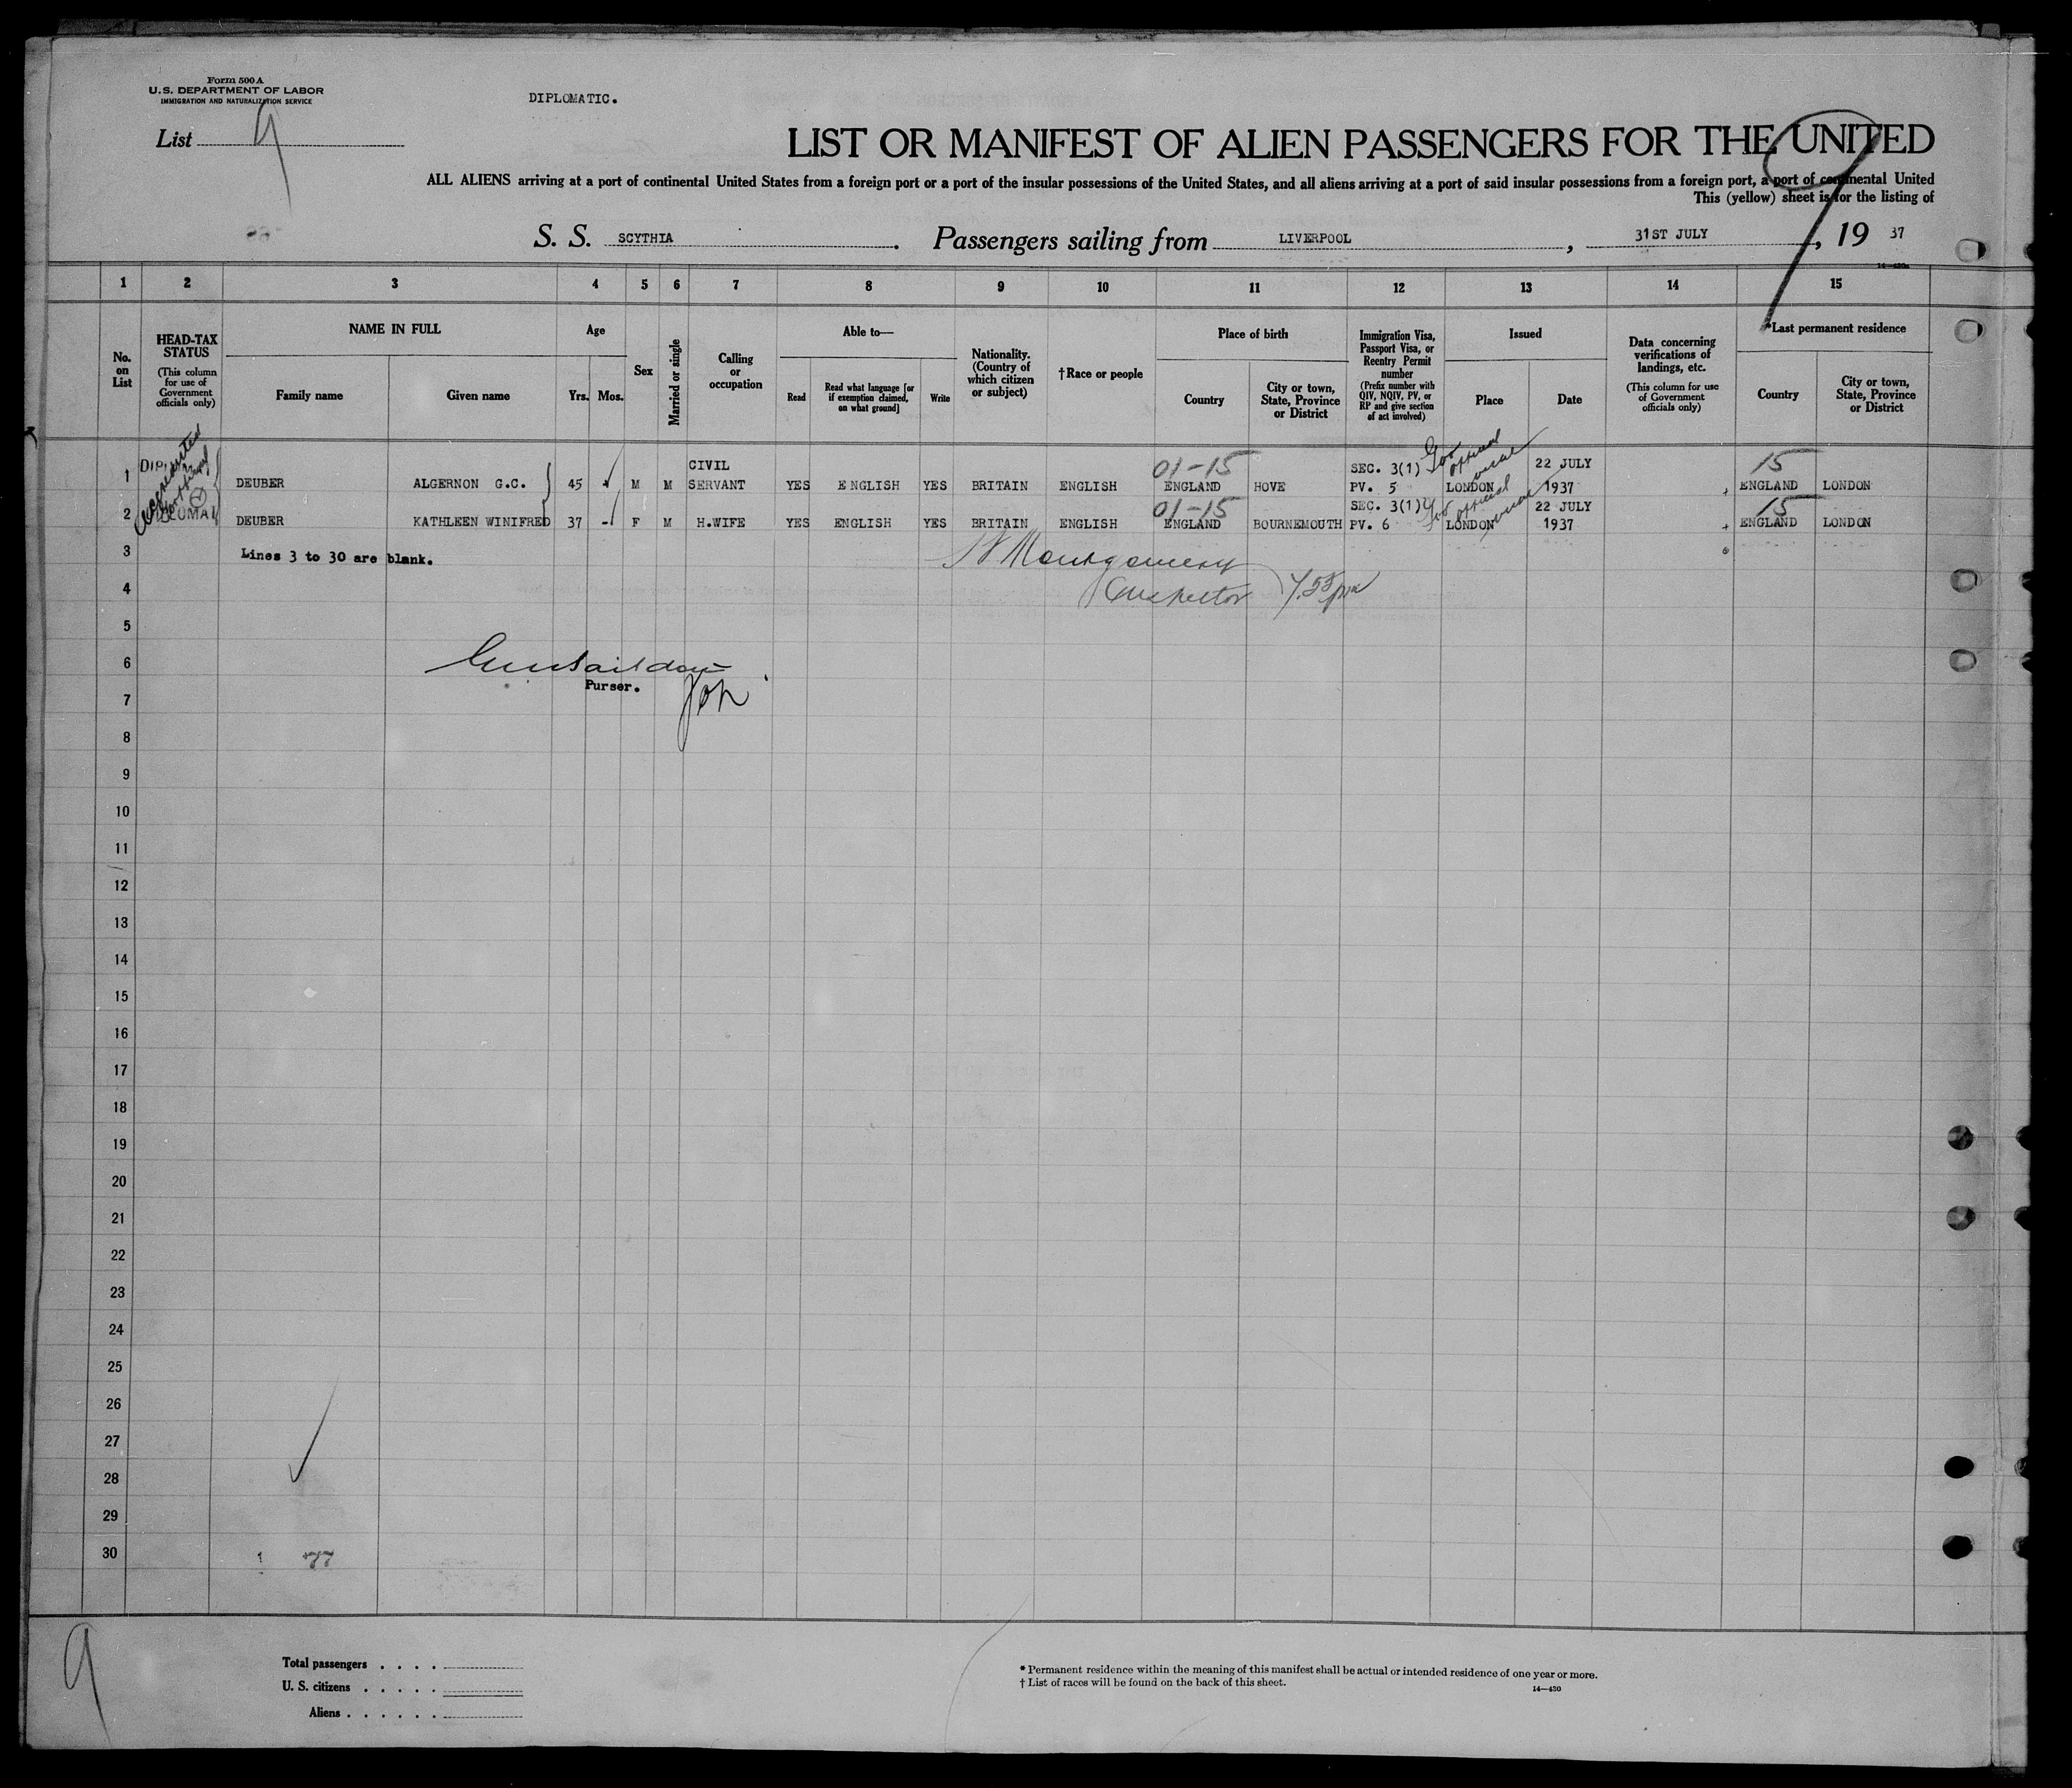 Form 500 A
U.S. DEPARTMENT OF LABOR
IMMIGRATION AND NATURALIZATION SERVICE
DIPLOMATIC.
List 9
LIST OR MANIFEST OF ALIEN PASSENGERS FOR THE UNITED
ALL ALIENS arriving at a port of continental United States from a foreign port or a port of the insular possessions of the United States, and all aliens arriving at a port of said insular possessions from a foreign port, a port of continental United
This (yellow) sheet is for the listing of
S. S. SCYTHIA. Passengers sailing from LIVERPOOL, 31ST JULY, 19 37
1 2 3 4 5 6 7 8 9 10 11 12 13 14 15
No. on List
HEAD-TAX STATUS
(This column for use of Government officials only)
NAME IN FULL
Family name
Given name
Age
Yrs. Mos.
Sex
Married or single
Calling or occupation
Able to—
Read
Read what language [or if exemption claimed, on what ground]
Write
Nationality. (Country of which citizen or subject)
†Race or people
Place of birth
Country
City or town, State, Province or District
Immigration Visa, Passport Visa, or Reentry Permit number
(Prefix number with QIV, NQIV, PV, or RP and give section of act involved)
Issued
Place
Date
Data concerning verifications of landings, etc.
(This column for use of Government officials only)
*Last permanent residence
Country
City or town, State, Province or District
CIVIL 01-15 SEC. 3(1) Gov official visa 22 JULY 15
1 DEUBER ALGERNON G.C. 45 M M SERVANT YES ENGLISH YES BRITAIN ENGLISH ENGLAND HOVE PV. 5 LONDON 1937 ENGLAND LONDON
01-15 SEC. 3(1) Gov official visa 22 JULY 15
2 DEUBER KATHLEEN WINIFRED 37 F M H.WIFE YES ENGLISH YES BRITAIN ENGLISH ENGLAND BOURNEMOUTH PV. 6 LONDON 1937 ENGLAND LONDON
3 Lines 3 to 30 are blank. Montgomery
4 Inspector 7.55 pm
5
6
Purser.
7
8
9
10
11
12
13
14
15
16
17
18
19
20
21
22
23
24
25
26
27
28
29
30 77
9
Total passengers . . . .
U. S. citizens . . . . .
Aliens . . . . . .
* Permanent residence within the meaning of this manifest shall be actual or intended residence of one year or more.
† List of races will be found on the back of this sheet.
14—430